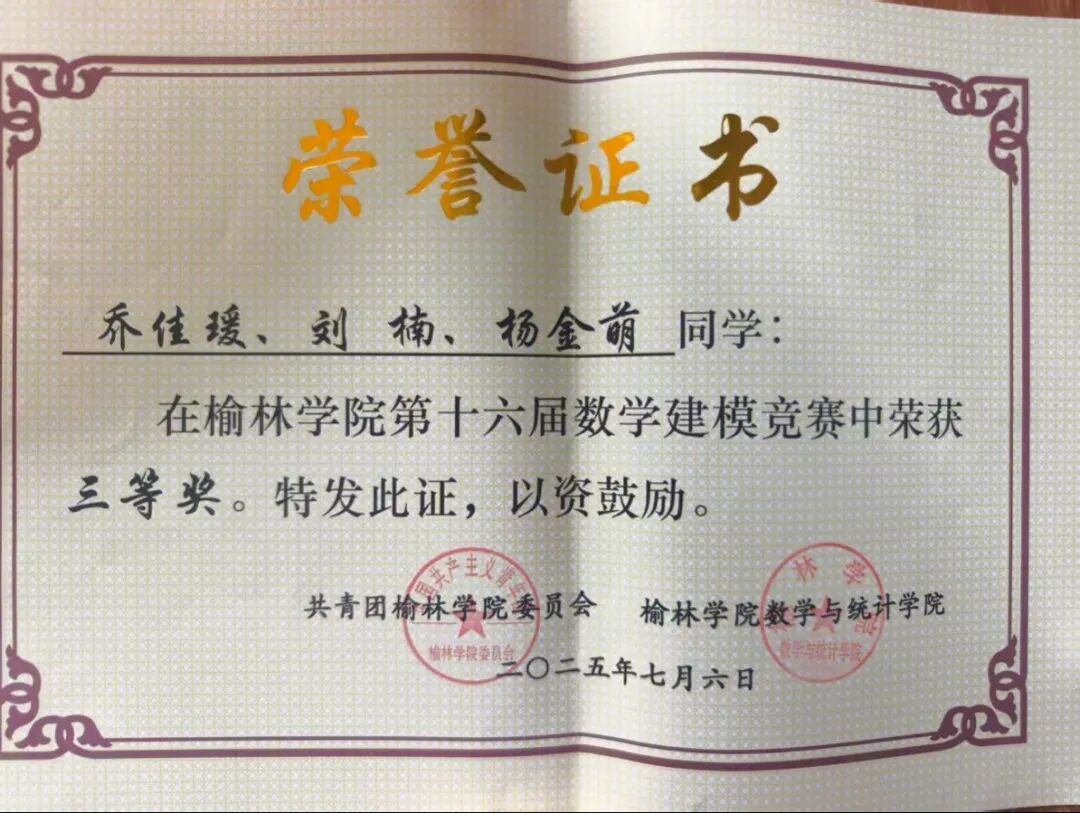 荣誉证书
乔佳瑗、刘 楠、杨金萌 同学：
在榆林学院第十六届数学建模竞赛中荣获
三等奖。特发此证，以资鼓励。
共青团榆林学院委员会 榆林学院数学与统计学院
二〇二五年七月六日
国共产主义青年
榆林学院委员会
林学院
数学与统计学院